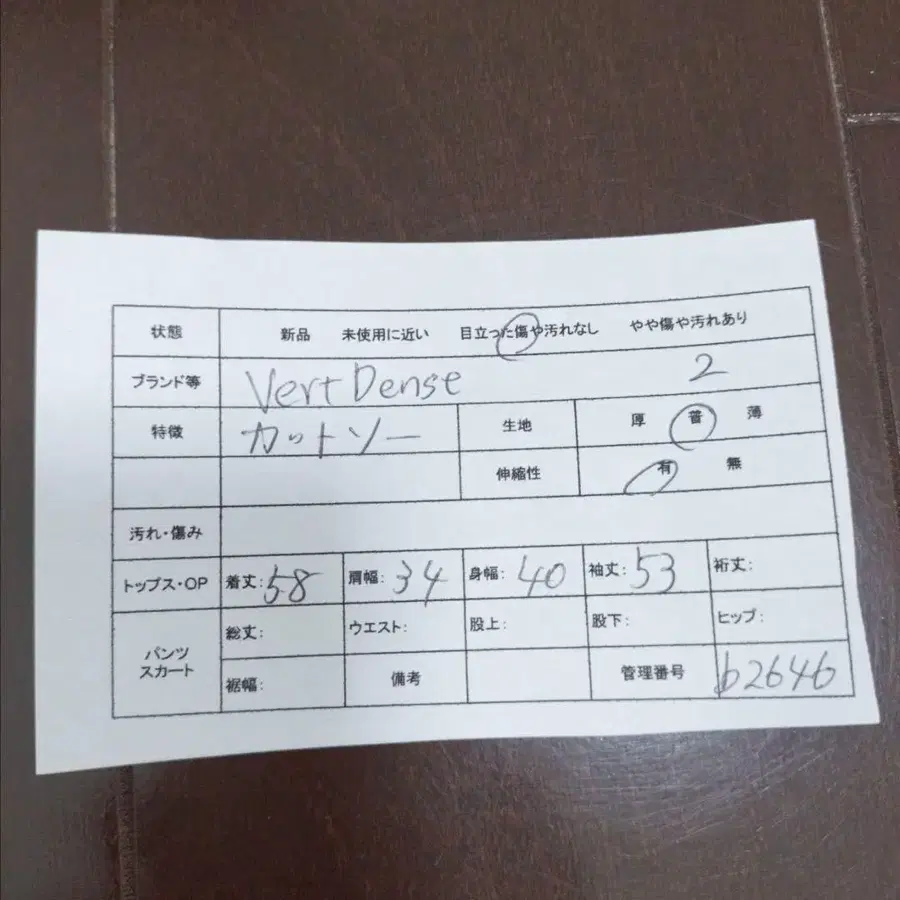 状態 新品 未使用に近い 目立った傷や汚れなし やや傷や汚れあり
ブランド等 Vert Dense 2
特徴 カットソー 生地 厚 普 薄
伸縮性 有 無
汚れ・傷み
トップス・OP 着丈:58 肩幅:34 身幅:40 袖丈:53 裄丈:
パンツ スカート 総丈: ウエスト: 股上: 股下: ヒップ:
裾幅: 備考 管理番号 b2646